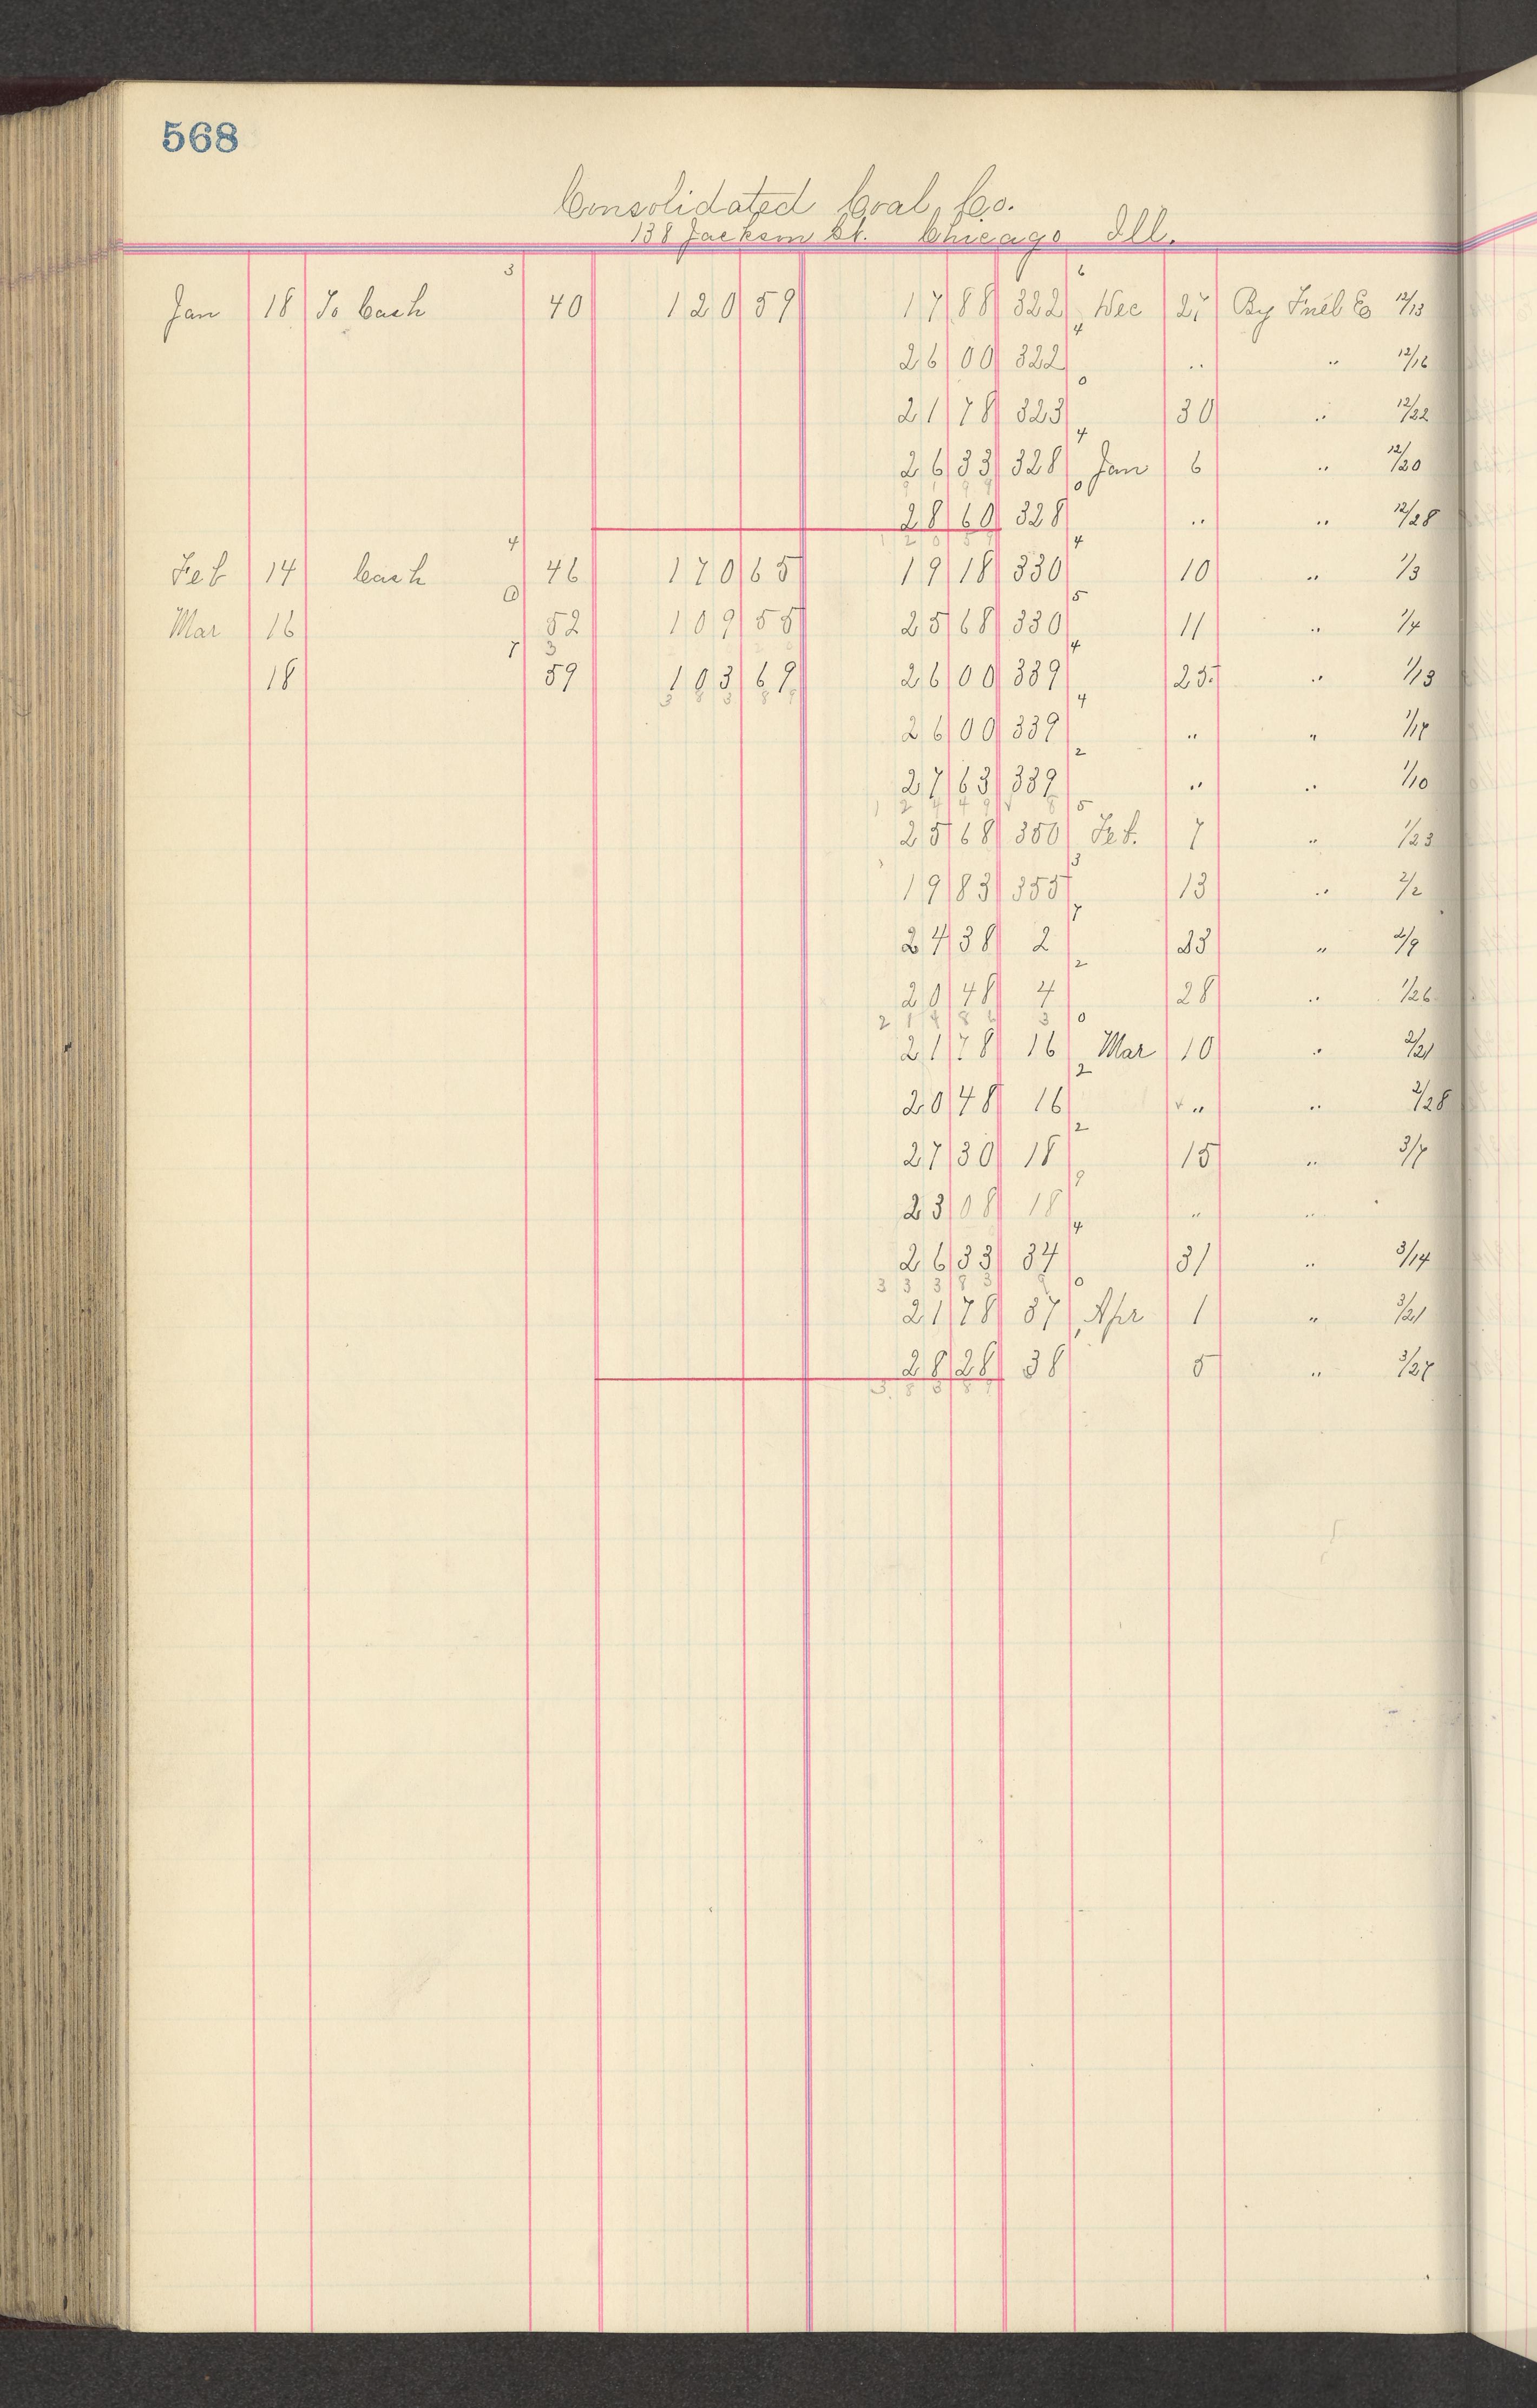 568
Consolidated Coal, Co.
138 Jackson St. Chicago Ill.
3 6
Jan 18 To Cash 40 120 59 17 88 322 Dec 27 By Fuel Co 12/13
4
26 00 322 " " 12/16
0
21 78 323 30 " 12/22
4
26 33 328 Jan 6 " 12/20
0
28 60 328 " " 12/28
4 1 2 0 5 9 4
Feb 14 Cash 46 170 65 19 18 330 10 " 1/3
0 5
Mar 16 52 109 55 25 68 330 11 " 1/4
7 3 4
18 59 103 69 26 00 339 25 " 1/13
4
26 00 339 " " 1/17
2
27 63 339 " " 1/10
5
25 68 350 Feb. 7 " 1/23
3
19 83 355 13 " 2/2
7
24 38 2 23 " 2/9
2
20 48 4 28 " 1/26
2 1 4 8 6 3 0
21 78 16 Mar 10 " 2/21
2
20 48 16 " " 2/28
2
27 30 18 15 " 3/7
9
23 08 18 " "
4
26 33 34 31 " 3/14
3 3 3 8 3 0
21 78 37 Apr 1 " 3/21
28 28 38 5 " 3/27